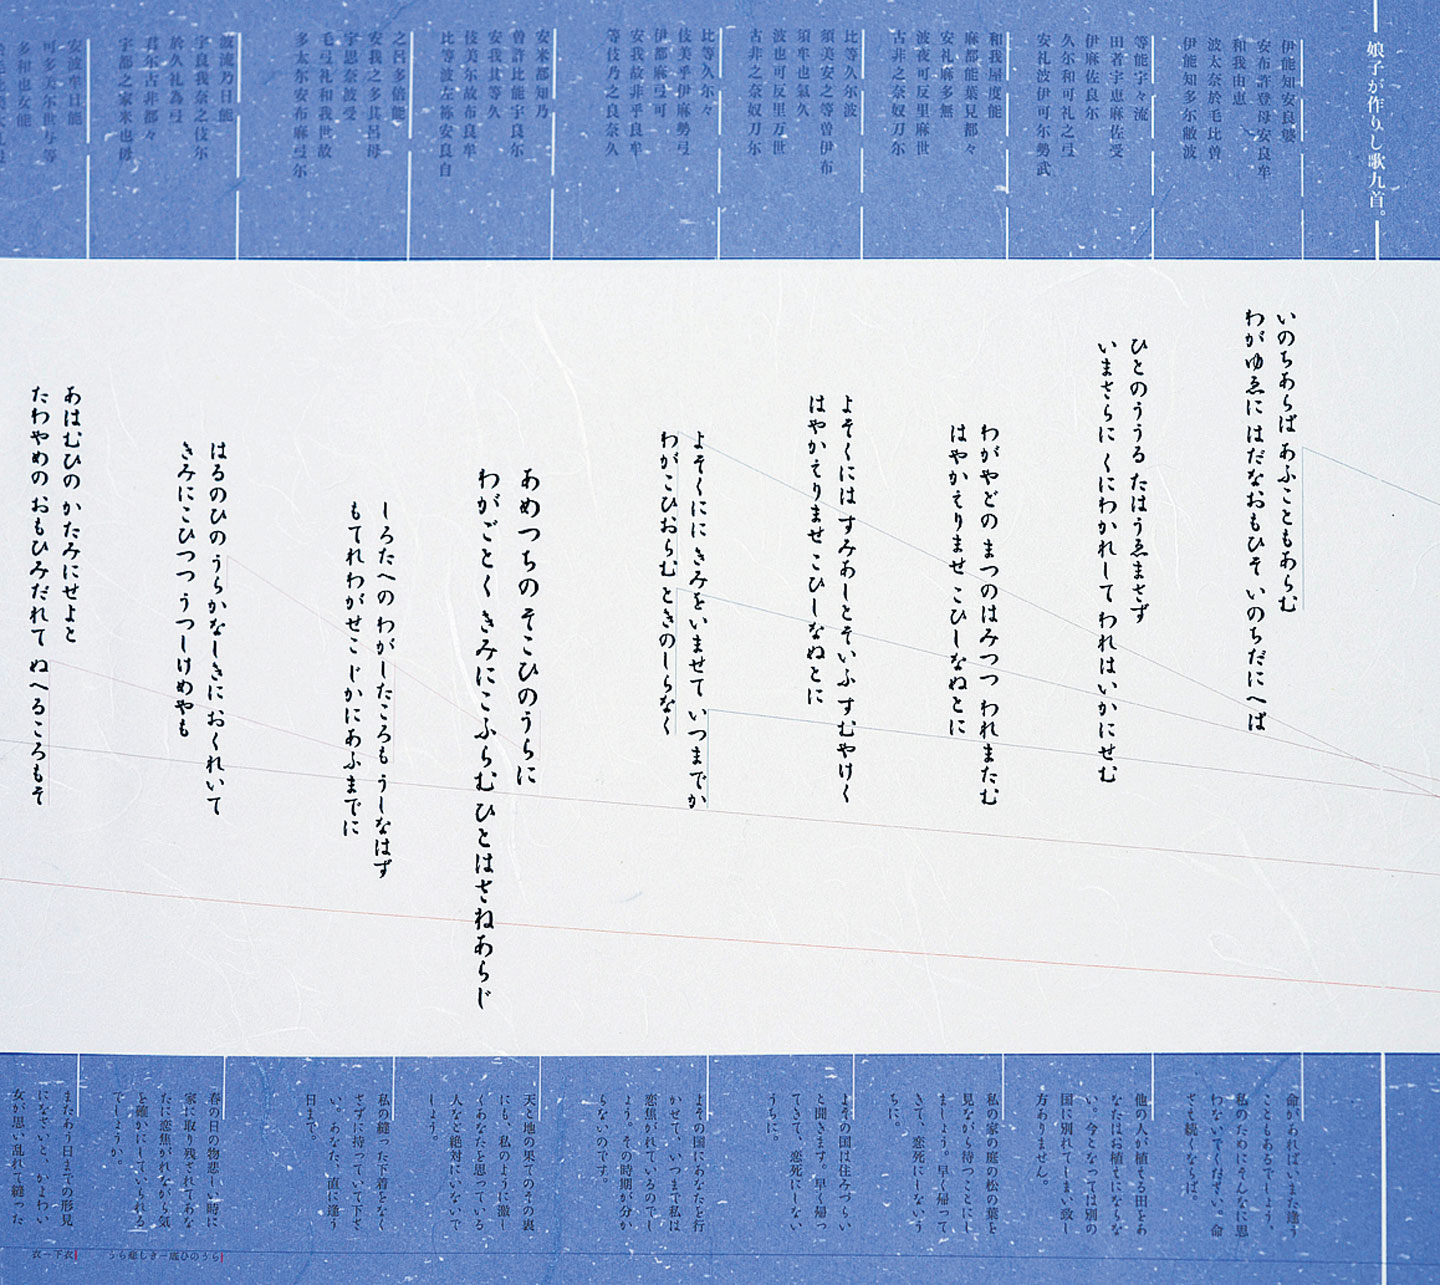 娘子が作りし歌九首。
伊能知安良婆
安布許登母安良牟
和我由恵
波太奈於毛比曽
伊能知多尓敝波
等能宇々流
田者宇恵麻佐受
伊麻佐良尓
久尓和可礼之弖
安礼波伊可尓勢武
和我屋度能
麻都能葉見都々
安礼麻多無
波夜可反里麻世
古非之奈奴刀尓
比等久尓波
須美安之等曽伊布
須牟也氣久
波也可反里万世
古非之奈奴刀尓
比等久尓々
伎美乎伊麻勢弖
伊都麻弖可
安我故非乎良牟
等伎乃之良奈久
安米都知乃
曽許比能宇良尓
安我其等久
伎美尓故布良牟
比等波左祢安良自
之呂多倍能
安我之多其呂母
宇思奈波受
毛弖礼和我世故
多太尓安布麻弖尓
波流乃日能
宇良我奈之伎尓
於久礼為弖
君尓古非都々
宇都之家米也母
安波牟日能
可多美尓世与等
多和也女能
いのちあらば あふこともあらむ
わがゆゑに はだなおもひそ いのちだにへば
ひとのううる たはうゑまさず
いまさらに くにわかれして われはいかにせむ
わがやどの まつのはみつつ われまたむ
はやかえりませ こひしなぬとに
よそくには すみあしとそいふ すむやけく
はやかえりませ こひしなぬとに
よそくにに きみをいませて いつまでか
わがこひおらむ ときのしらなく
あめつちの そこひのうらに
わがごとく きみにこふらむ ひとはさねあらじ
しろたへの わがしたころも うしなはず
もてれわがせこ じかにあふまでに
はるのひの うらかなしきに おくれいて
きみにこひつつ うつしけめやも
あはむひの かたみにせよと
たわやめの おもひみだれて ぬへるころもそ
命があればいまた逢う
こともあるでしょう。
私のためにそんなに思
わないでください。命
さえ続くならば。
他の人が植える田をあ
なたはお植えにならな
い。今となっては別の
国に別れてしまい致し
方ありません。
私の家の庭の松の葉を
見ながら待つことにし
ましょう。早く帰って
きて、恋死にしないう
ちに。
よその国は住みづらい
と聞きます。早く帰っ
てきて、恋死にしない
うちに。
よその国にあなたを行
かせて、いつまで私は
恋焦がれているのでし
ょう。その時期が分か
らないのです。
天と地の果てのその裏
にも、私のように激し
くあなたを思っている
人など絶対にいないで
しょう。
私の縫った下着をなく
さずに持っていて下さ
い。あなた、直に逢う
日まで。
春の日の物悲しい時に
家に取り残されてあな
たに恋焦がれながら気
を確かにしていられる
でしょうか。
またあう日までの形見
になさいと、かよわい
女が思い乱れて縫った
うら悲しき―底ひのうら
衣―下衣